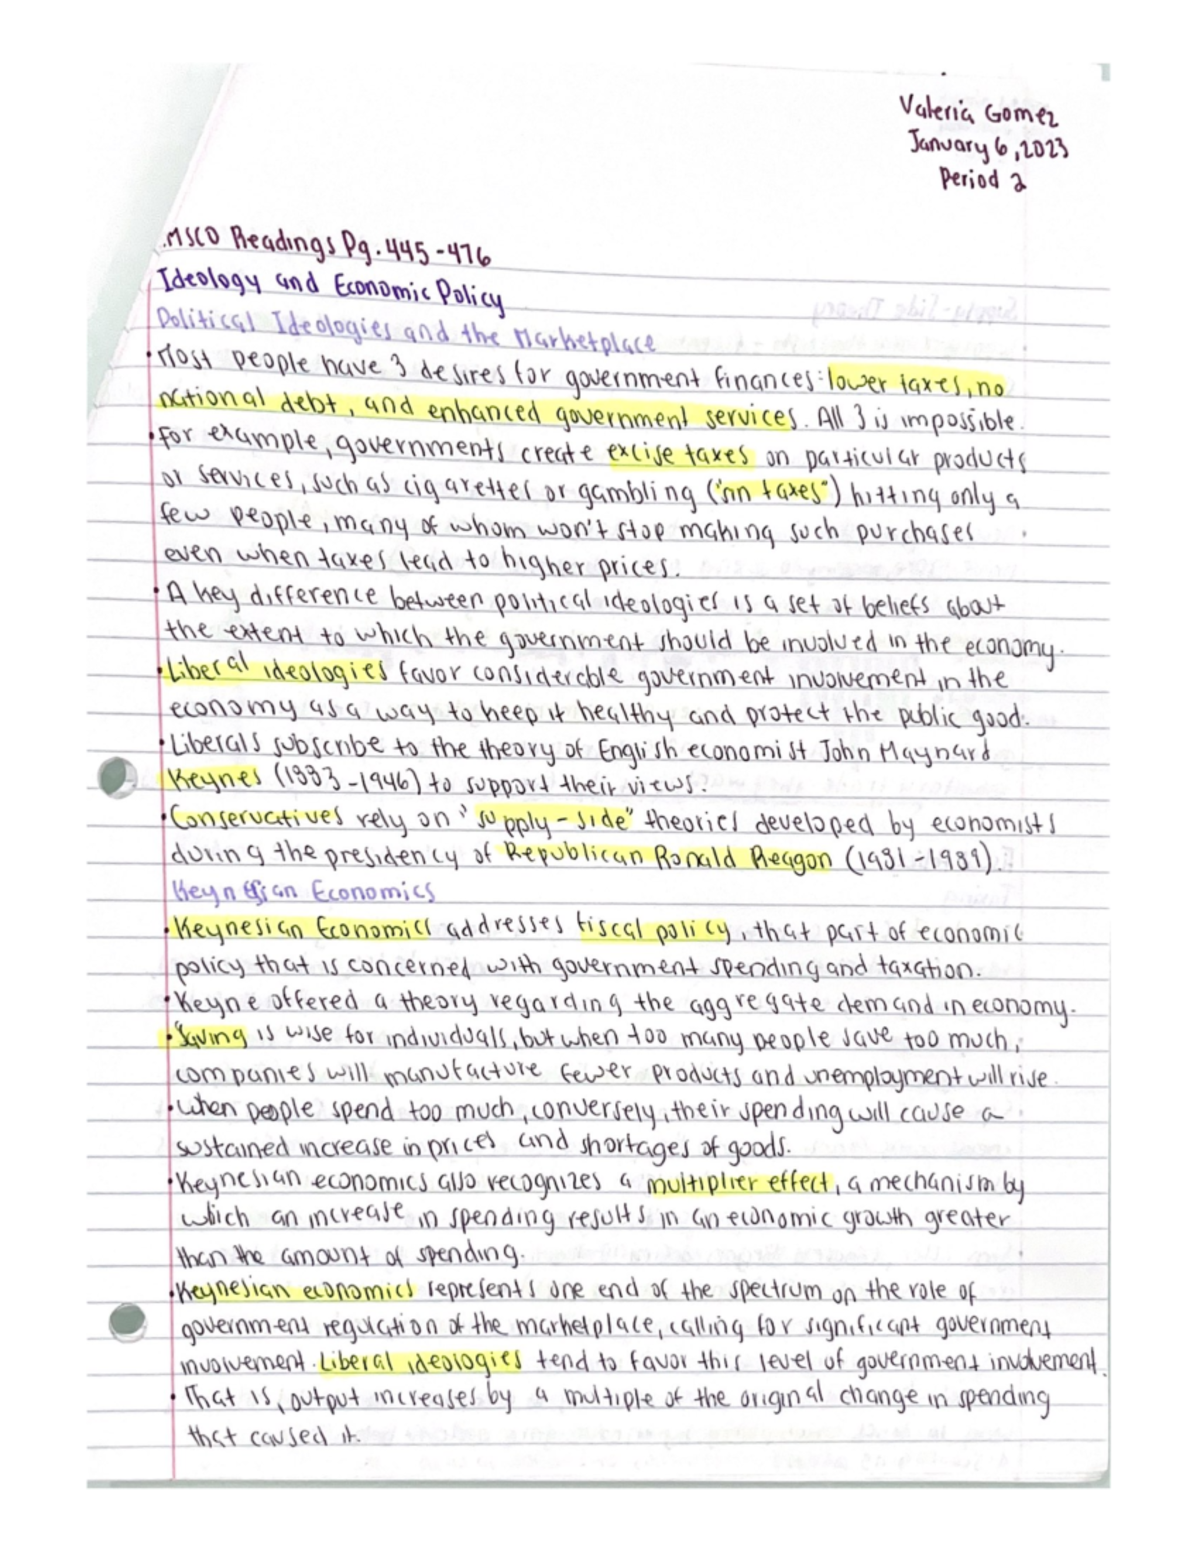 Valeria Gomez
January 6, 2023
Period 2
AMSCO Readings Pg. 445-476
Ideology and Economic Policy
Political Ideologies and the Marketplace
• Most people have 3 desires for government finances: lower taxes, no
national debt, and enhanced government services. All 3 is impossible.
• For example, governments create excise taxes on particular products
or services, such as cigarettes or gambling ("sin taxes") hitting only a
few people, many of whom won't stop making such purchases
even when taxes lead to higher prices.
• A key difference between political ideologies is a set of beliefs about
the extent to which the government should be involved in the economy.
• Liberal ideologies favor considerable government involvement in the
economy as a way to keep it healthy and protect the public good.
• Liberals subscribe to the theory of English economist John Maynard
Keynes (1883-1946) to support their views.
• Conservatives rely on "supply-side" theories developed by economists
during the presidency of Republican Ronald Reagan (1981-1989).
Keynesian Economics
• Keynesian Economics addresses fiscal policy, that part of economic
policy that is concerned with government spending and taxation.
• Keyne offered a theory regarding the aggregate demand in economy.
• Saving is wise for individuals, but when too many people save too much,
companies will manufacture fewer products and unemployment will rise.
• When people spend too much, conversely, their spending will cause a
sustained increase in prices and shortages of goods.
• Keynesian economics also recognizes a multiplier effect, a mechanism by
which an increase in spending results in an economic growth greater
than the amount of spending.
• Keynesian economics represents one end of the spectrum on the role of
government regulation of the marketplace, calling for significant government
involvement. Liberal ideologies tend to favor this level of government involvement.
• That is, output increases by a multiple of the original change in spending
that caused it.